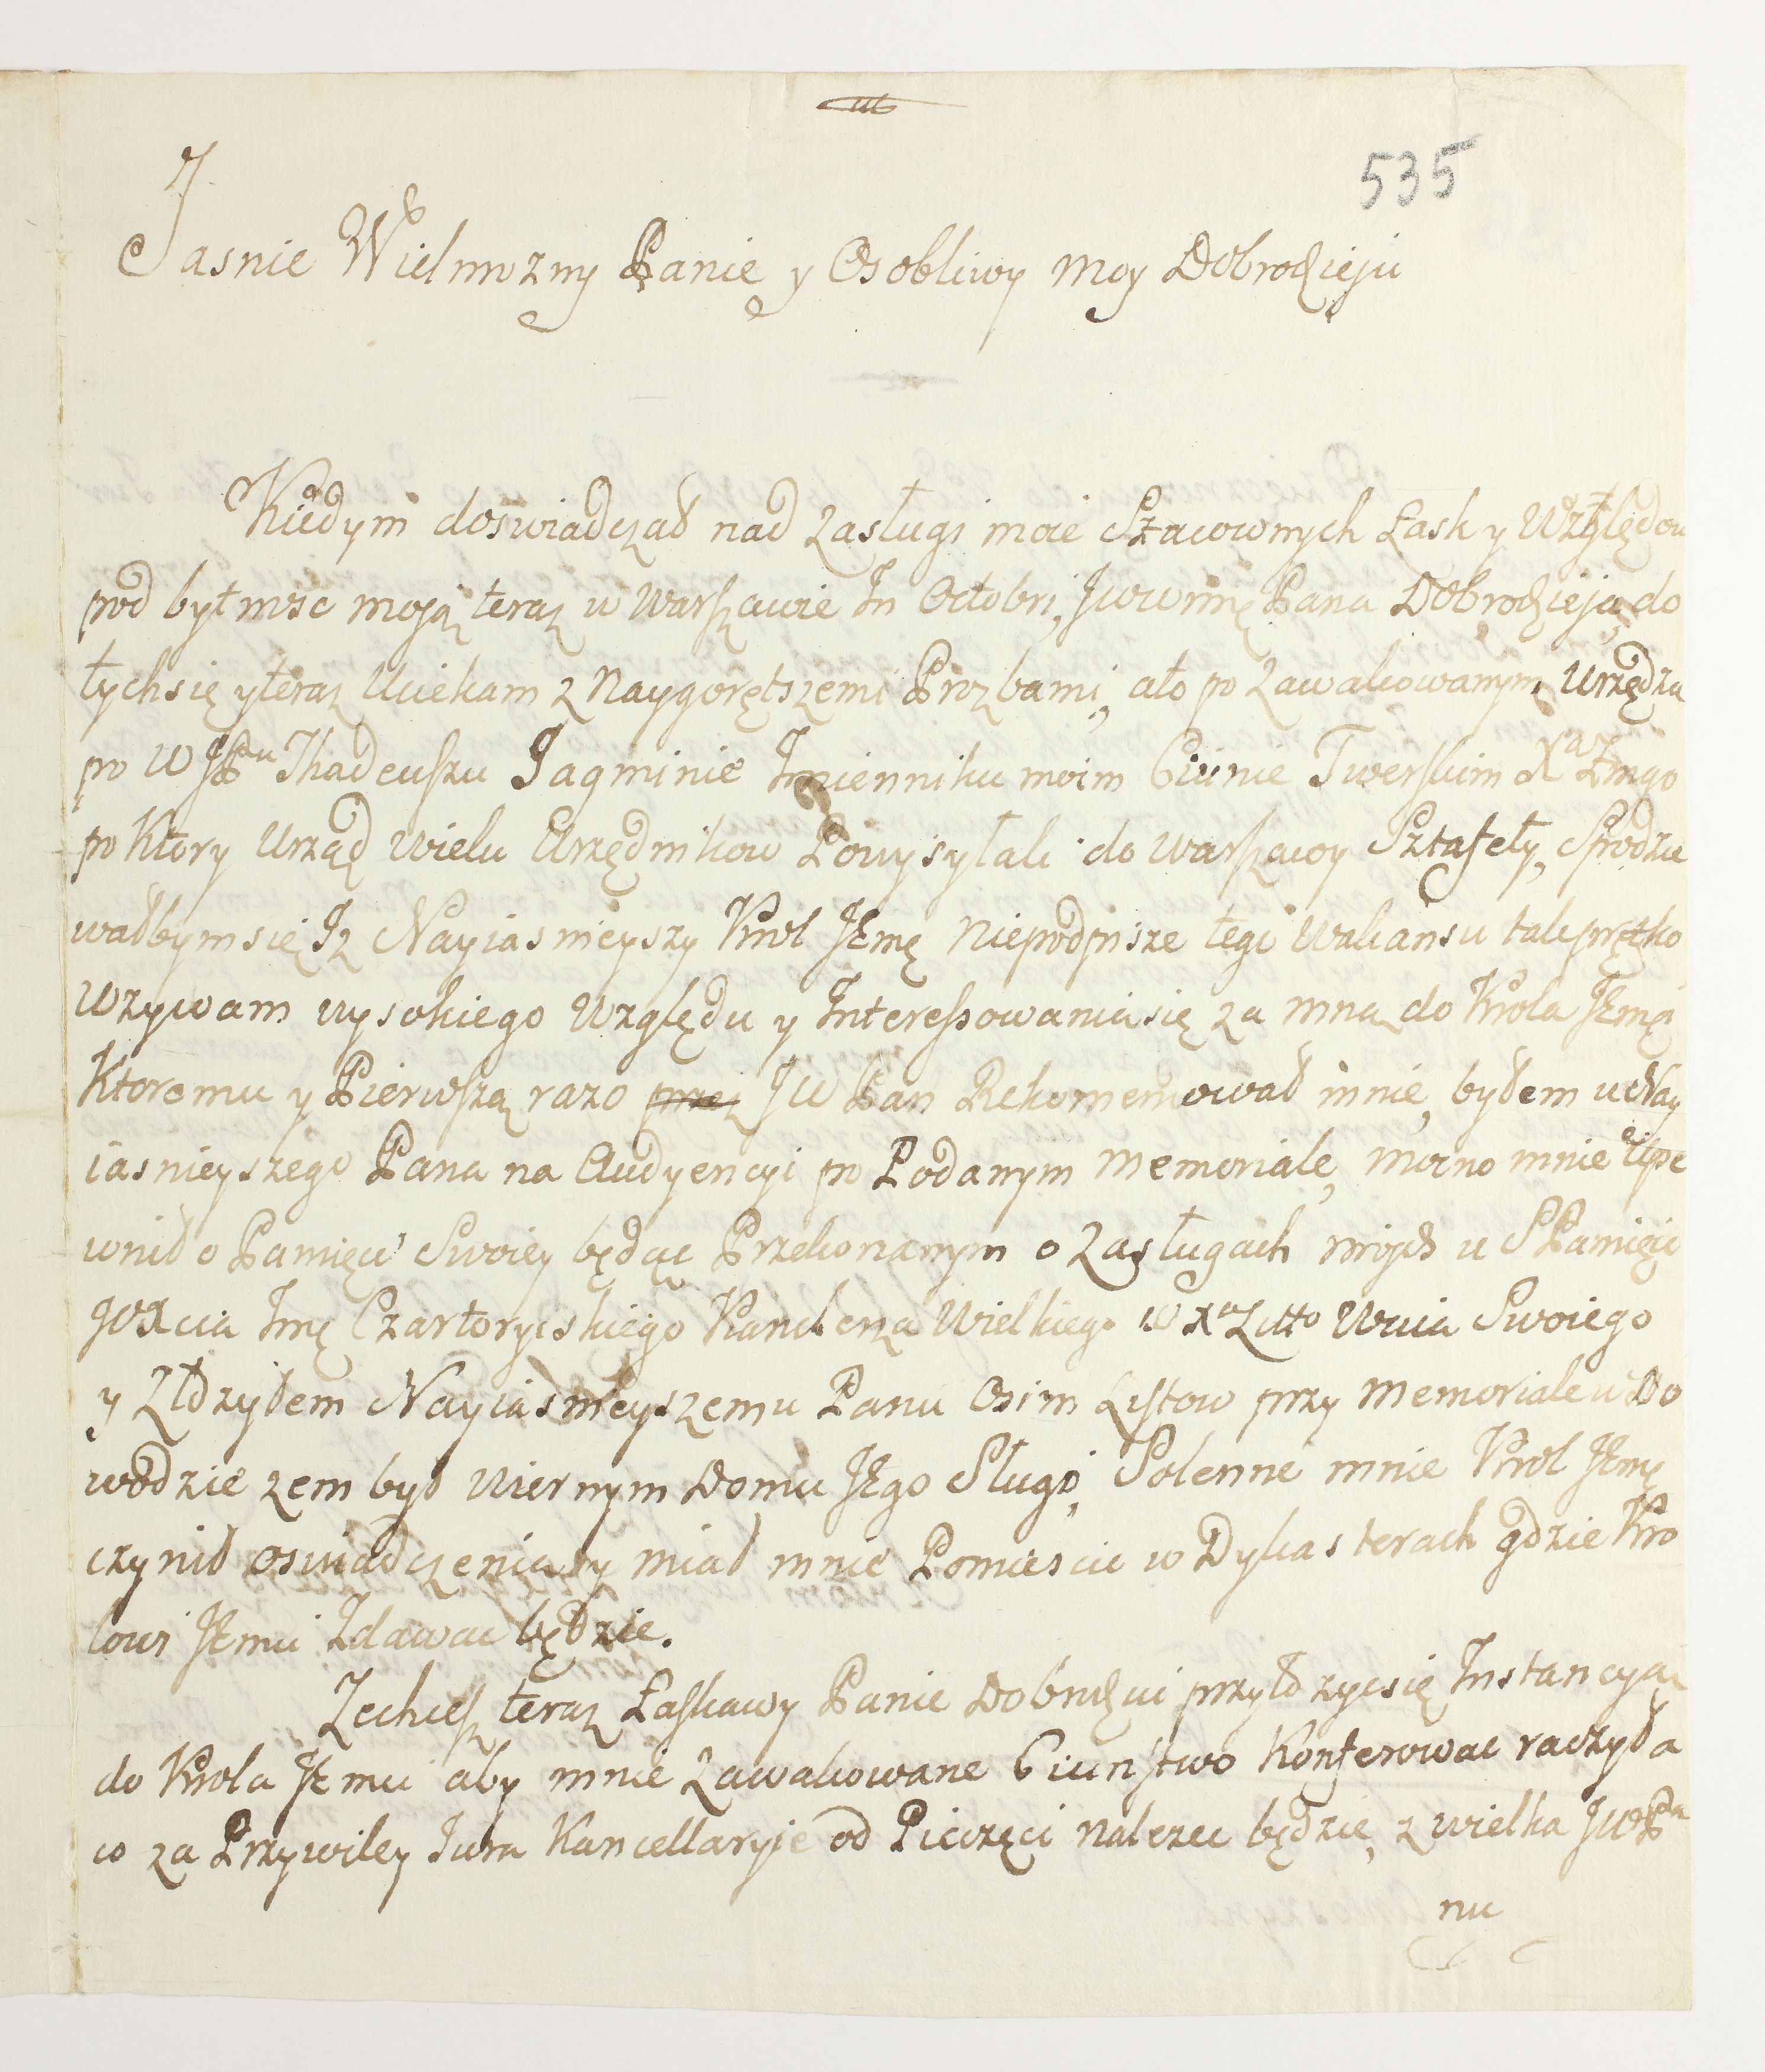 535
Jasnie Wielmozny Panie y Osobliwy Moy Dobrodzieju
Kiedym doswiadczał nad zasługi moie Szacownych Łask y Względow
pod bytnosc moją teraz w Warszawie In Octobri, Jwwmę Pana Dobrodzieja, do
tych się y teraz Uciekam z Naygorętszemi Prozbami, ato po Zawakowanym Urzędzu
po W JPu Thadeuszu Jagminie Imienniku moim Ciunie Twerskim Xa Zmgo
po Ktory Urząd wielu Urzędnikow Powysyłali do Warszawy Sztafety, Spodzie
wałbym się Iz Nayiasnieyszy Krol JEmę Niepodpisze tego Wakansu tak prętko
Wzywam wysokiego Względu y Interessowania się za mną do Krola JEmę
Ktoremu y Pierwszą razo przez JW Pan Rekomemował mnie, byłem u Nay
iasnieyszego Pana na Audyencyi po Podanym Memoriale, mocno mnie Upe
wnił o Pamięci Swoiey będąc Przekonanym o Zasługach moich u SPamięci
JOXcia Jmę Czartoryiskiego Kanclerza Wielkiego W Xa Litto Wuia Swoiego
y Złozyłem Nayiasnieyszemu Panu Osim Listow przy Memoriale w Do
wodzie zem był Wiernym Domu JEgo Sługo, Solenne mnie Krol JEmę
czynił oswiadczenia, y miał mnie Pomiescic w Dykasterach gdzie Kro
lowi JEmu Zdawac będzie.
Zechciesz teraz Łaskawy Panie Dobrodzieiu przyłozyc się Instancyą
do Krola JEmu aby mnie Zawakowane Ciunstwo Konferowac raczył a
co za Przywiley Jura Kancellaryie od Pieczęci nalezec będzie, z wielka JWPa
nu